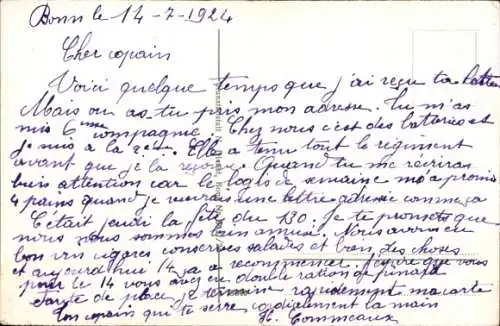 Bonn le 14-7-1924
Cher copain
Voici quelque temps que j'ai reçu ta lettre
Mais ou as-tu pris mon adresse. Tu m'as
mis 6eme compagnie. Chez nous c'est des batteries et
je suis a la 2e. Elle a tenu tout le regiment
avant que je la reçoive. Quand tu me recriras
fais attention car le logis de semaine m'a promis
4 pains quand je une lettre adressé comme ça
C'était jeudi la fête du 130. Je te promets que
nous nous sommes bien amusé. Nous avons eu
bon vin cigares conserves salades et bien des choses
et aujourd'hui 14 ça a recommencer. J'espère que vous
pour le 14 vous aviez eu double ration de pinard
Faute de place je termine rapidement ma carte
Ton copain qui te serre cordialement la main
H. Commeaux